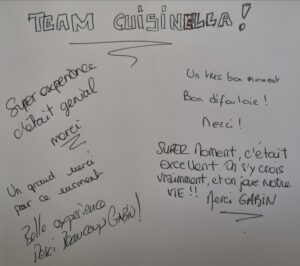 TEAM CUISINELLA!
Super expérience
c'était génial
merci
Un grand merci
pour ce moment
Belle expérience
Merci Beaucoup (GABIN)!
Un très bon moment
Bon défouloir!
Merci!
SUPER Moment, c'était
excellent. On s'y crois
vraiment, et on joue notre
VIE!! Merci GABIN